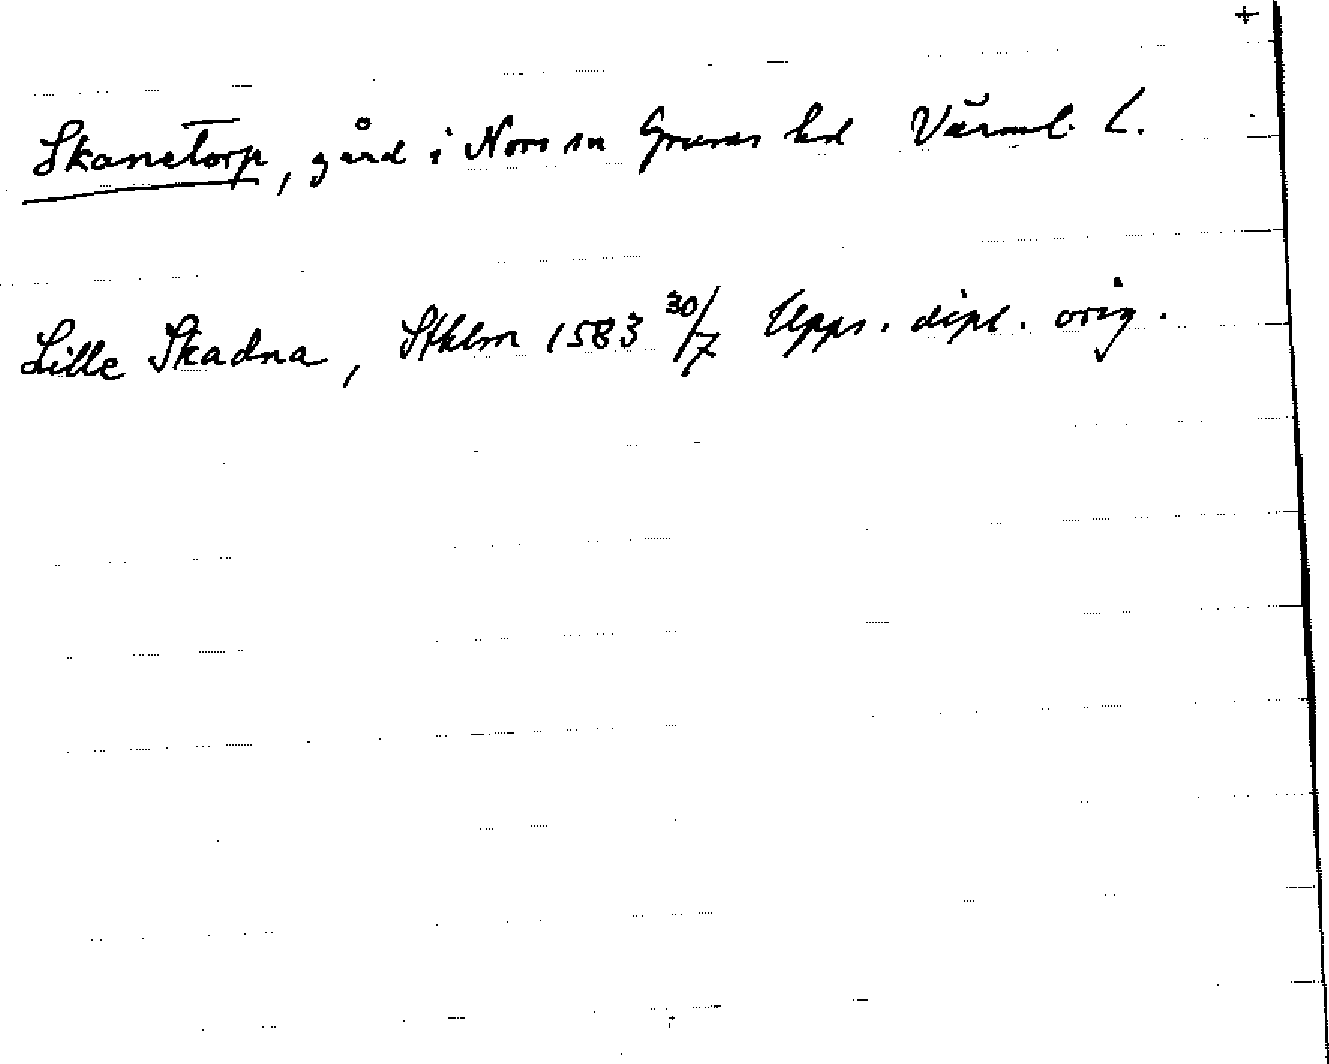 +
Skanetorp, gård i Nors sn Grums hd Värml. l.
Lille Skadna, Sthlm 1583 30/7 Upps. dipl. orig.